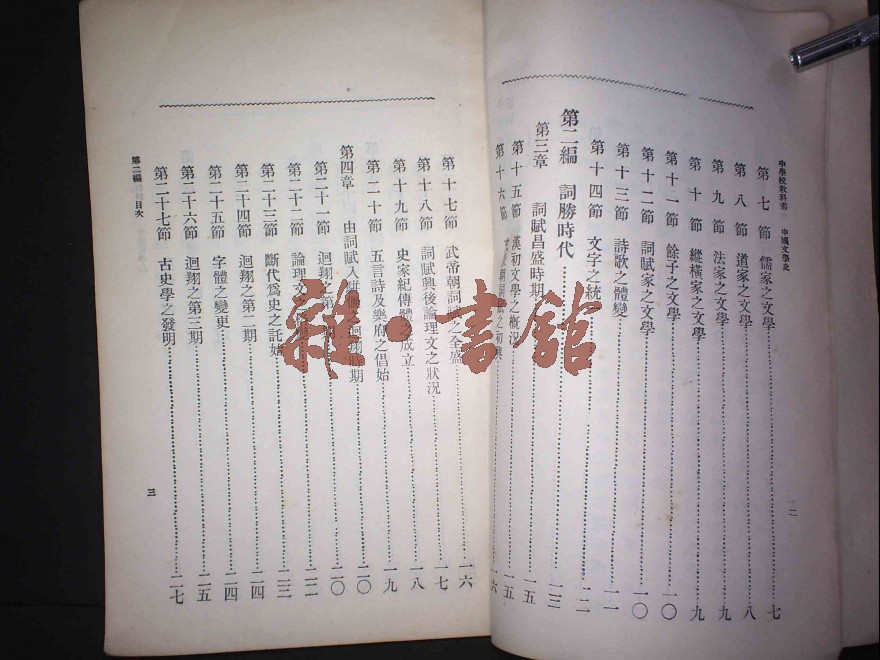 中學校教科書　中國文學史
第七節　儒家之文學……七
第八節　道家之文學……八
第九節　法家之文學……九
第十節　縱橫家之文學……九
第十一節　餘子之文學……一〇
第十二節　詞賦家之文學……一〇
第十三節　詩歌之體變……一一
第十四節　文字之統……一二
第二編　詞勝時代……一三
第三章　詞賦昌盛時期……一五
第十五節　漢初文學之概況……一五
第十六節　詞賦之初興……一六
二
第十七節　武帝朝詞賦之全盛……一六
第十八節　詞賦興後論理文之狀況……一七
第十九節　史家紀傳體之成立……一八
第二十節　五言詩及樂府之倡始……一九
第四章　由詞賦入駢儷之迴翔時期……二〇
第二十一節　迴翔之第一期……二〇
第二十二節　論理文之……二二
第二十三節　斷代爲史之託始……二三
第二十四節　迴翔之第二期……二四
第二十五節　字體之變更……二四
第二十六節　迴翔之第三期……二五
第二十七節　古史學之發明……二七
第二編　目次
三
雜·書館